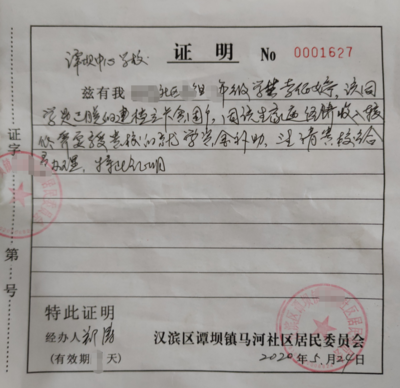 证 明 No 0001627
谭坝中心学校:
兹有我 年级学生李佰婷,该同
学是已脱的建档立卡贫困户,因该生家庭经济收入较
低 需要贵校的 学 金补助,注请贵校给
予办理,特此证明
证字
第 号
特此证明
经办人
(有效期 天)
汉滨区谭坝镇马河社区居民委员会
2020年5月24日